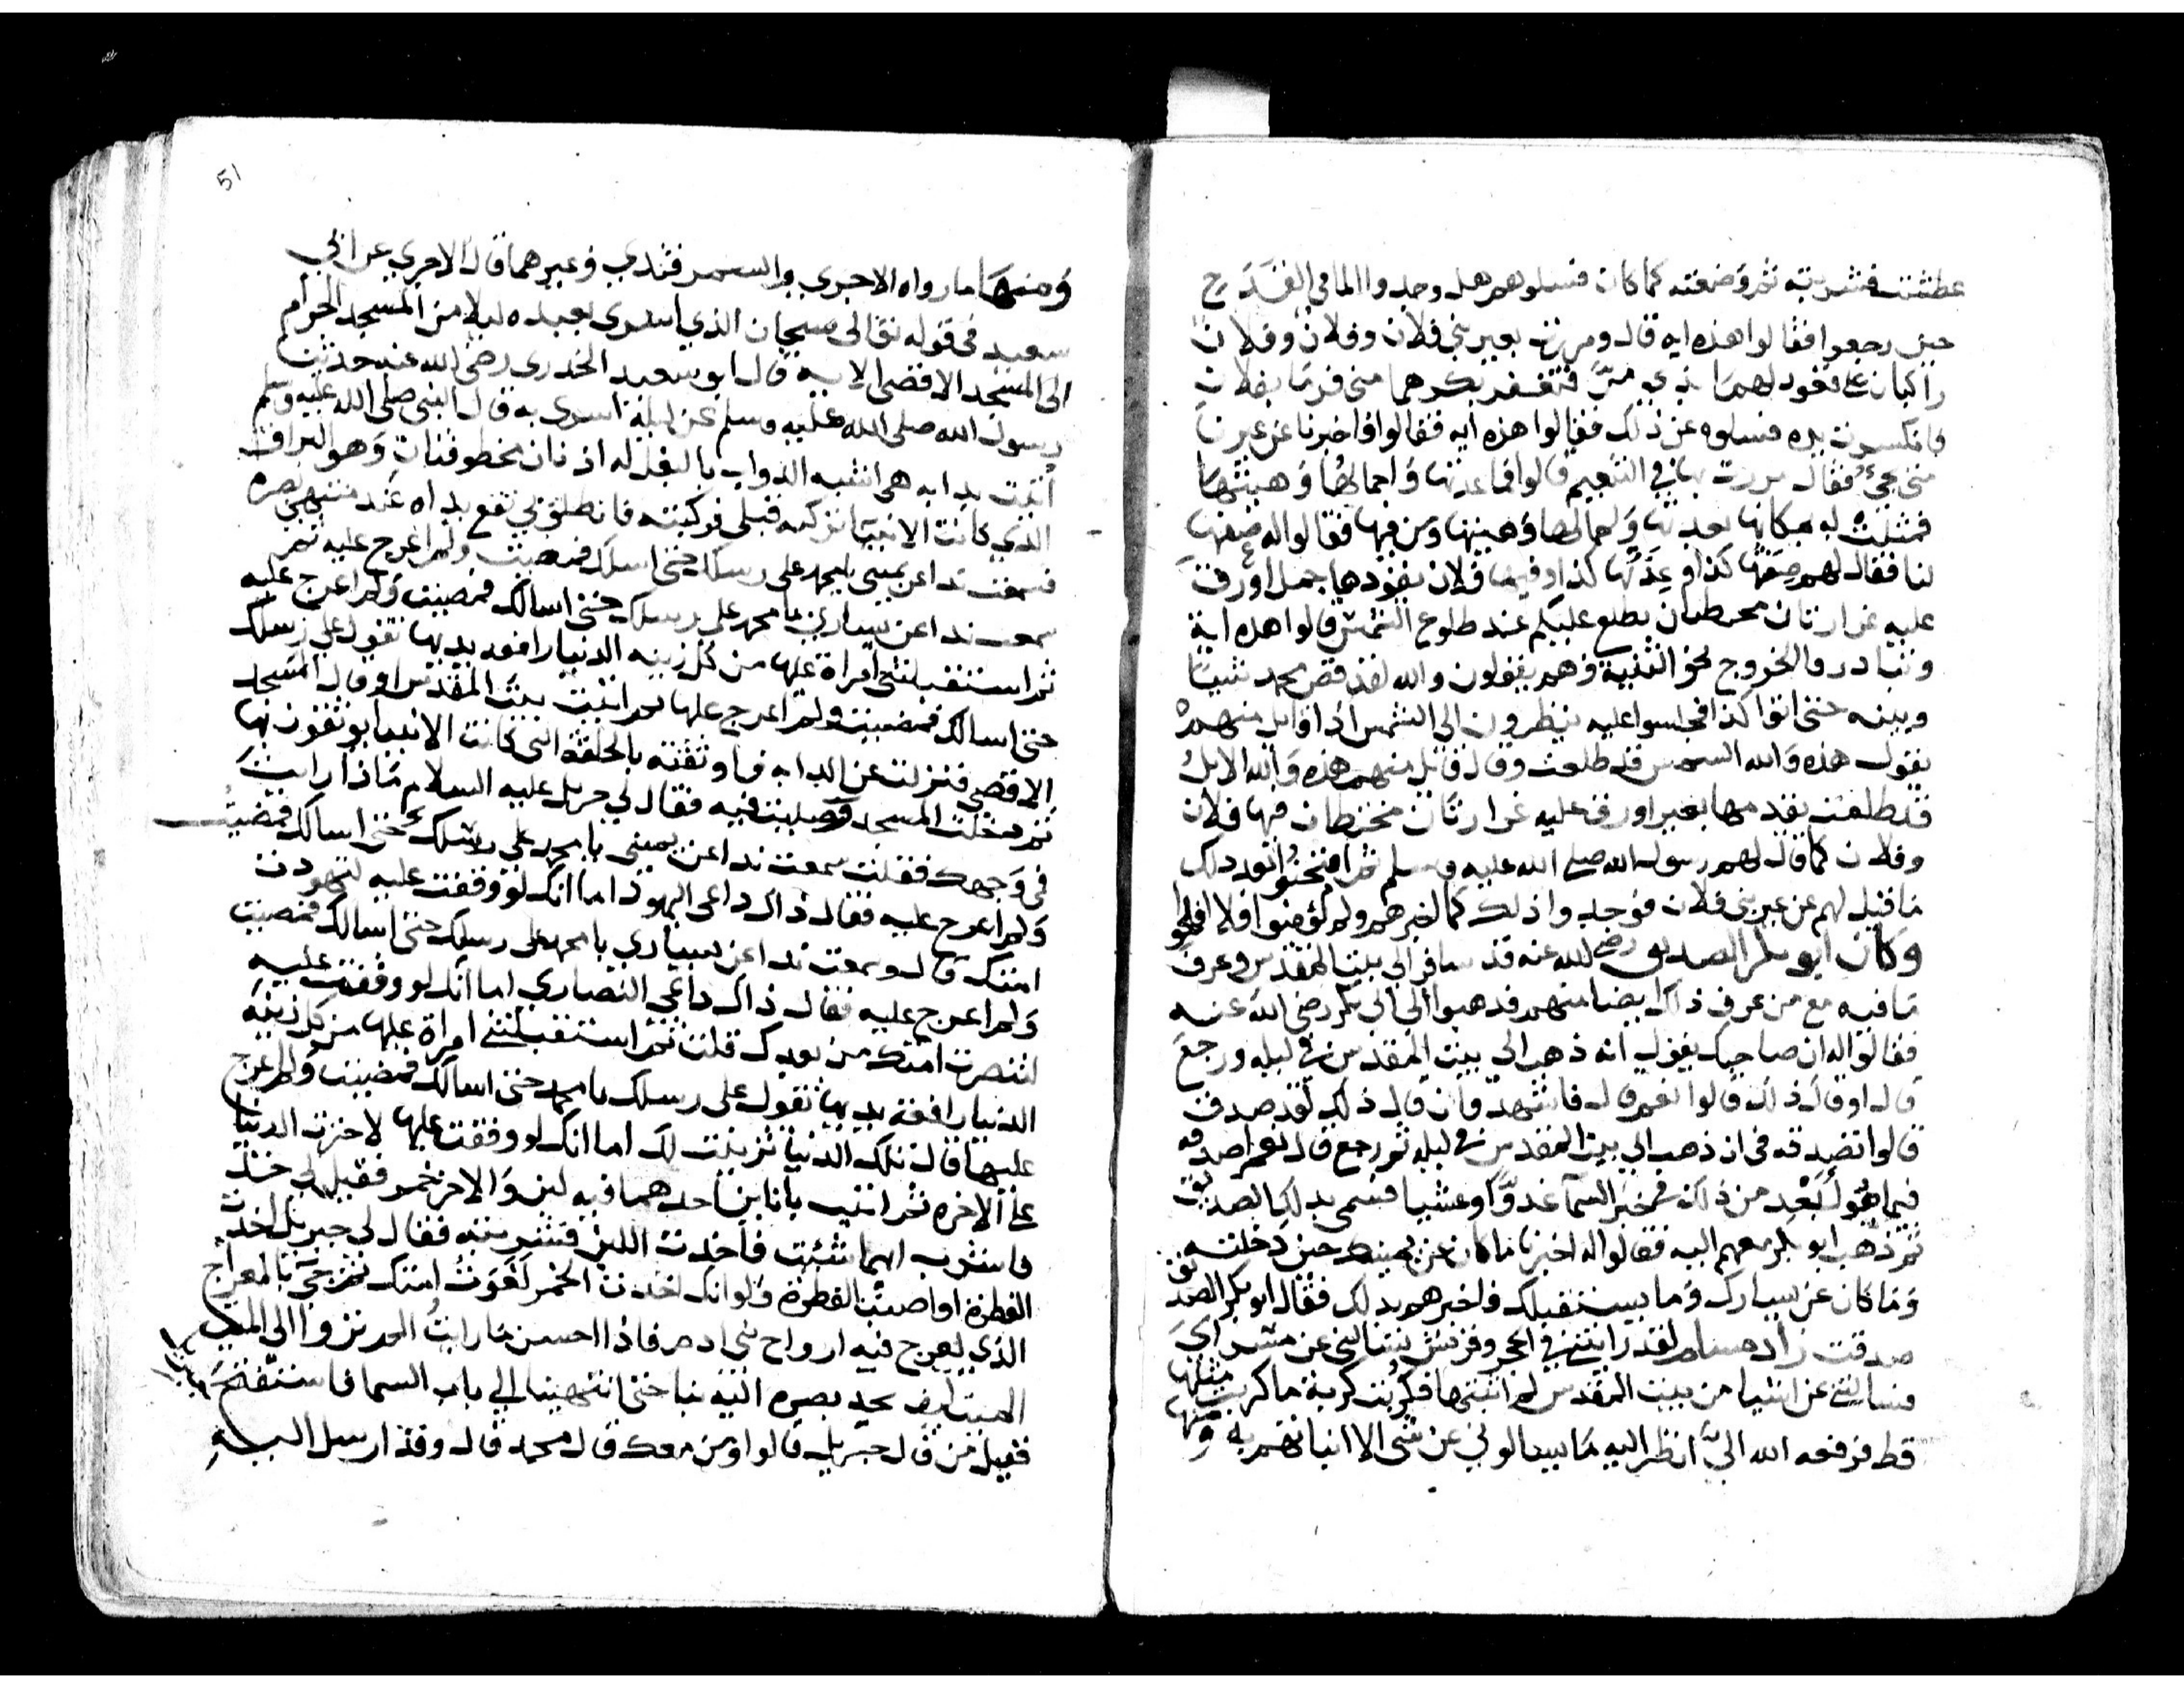 عطشت فشربته ثم وضعته كما كان فسلوهم هل وجدوا الما في القدح
حين رجعوا فقالوا هذه اية قال ومررت بعير بني فلان وفلان وفلان
راكبان على قعود لهما بذي مر فنفر بكرهما مني فرما بفلان
فانكسرت يده فسلوه عن ذلك فقالوا هذه اية فقالوا فاخبرنا عن عيرنا
متى تجي فقال مررت بها في التنعيم قالوا فما عدتها واحمالها وهيئتها
فمثلت له مكانها بعدتها واحمالها وهيئتها ومن فيها فقالوا له صفها
لنا فقال لهم صفتها كذا وعدتها كذا وفيها فلان يقودها جمل اورق
عليه غرارتان مخيطتان يطلع عليكم عند طلوع الشمس قالوا هذه اية
وتبادروا الخروج نحو الثنية وهم يقولون والله لقد قص محمد شيئا
وبينه حتى اتوا كذا فجلسوا عليه ينظرون الى الشمس اذا قايل منهم
يقول هذه والله الشمس قد طلعت وقال قايل منهم هذه والله الابل
قد طلعت يقدمها بعير اورق عليه غرارتان مخيطتان فيها فلان
وفلان كما قال لهم رسول الله صلى الله عليه وسلم ثم امتحنوا بعد ذلك
ما قيل لهم عن عير بني فلان فوجدوا ذلك كما اخبرهم ولم يؤمنوا فلا افلحوا
وكان ابو بكر الصديق رضي الله عنه قد سافر الى بيت المقدس وعرف
ما فيه مع من عرف ذلك ايضا منهم فذهبوا الى ابي بكر رضي الله عنه
فقالوا له ان صاحبك يقول انه ذهب الى بيت المقدس في ليله ورجع
قال اوقال ذلك قالوا نعم قال فاشهد فان قال ذلك لقد صدق
قالوا تصدقه في ان ذهب الى بيت المقدس في ليله ثم رجع قال نعم اصدقه
فيما هو ابعد من ذلك في خبر السما غدوا وعشيا فسمي بذلك الصديق
ثم ذهب ابو بكر معهم اليه فقالوا له اخبرنا ما كان عن يمينك حين دخلته
وما كان عن يسارك وما يستقبلك فاخبرهم بذلك فقال ابو بكر الصديق
صدقت زاد مسلم لقد رايتني في الحجر وقريش تسالني عن مسراي
فسالتني عن اشيا من بيت المقدس لم اثبتها فكربت كربة ما كربت مثلها
قط فرفعه الله الي انظر اليه ما يسالوني عن شي الا انباتهم به ومنها
51
ومنها ما رواه الاجري والسمرقندي وغيرهما قال الاجري عن ابي
سعيد في قوله تعالى سبحان الذي اسرى بعبده ليلا من المسجد الحرام
الى المسجد الاقصى الاية قال ابو سعيد الخدري رضي الله عنه حدثنا
رسول الله صلى الله عليه وسلم عن ليلة اسري به قال النبي صلى الله عليه وسلم
اتيت بدابه هي اشبه الدواب بالبغل له اذنان مخطوفتان وهو البراق
الذي كانت الانبيا تركبه قبلي فركبته فانطلق بي تقع يداه عند منتهى بصره
فسمعت ندا عن يميني يا محمد على رسلك حتى اسلك فمضيت ولم اعرج عليه ثم
سمعت ندا عن يساري يا محمد على رسلك حتى اسالك فمضيت ولم اعرج عليه
ثم استقبلتني امراة عليها من كل زينه الدنيا رافعه يديها تقول على رسلك
حتى اسالك فمضيت ولم اعرج عليها ثم اتيت بيت المقدس او قال المسجد
الاقصى فنزلت عن الدابه فاوثقته بالحلقة التي كانت الانبيا يوثقون بها
ثم دخلت المسجد وصليت فيه فقال لي جبريل عليه السلام ماذا رايت
في وجهك فقلت سمعت ندا عن يميني يا محمد على رسلك حتى اسالك فمضيت
ولم اعرج عليه فقال ذاك داعي اليهود اما انك لو وقفت عليه لتهودت
امتك قال وسمعت ندا عن يساري يا محمد على رسلك حتى اسالك فمضيت
ولم اعرج عليه فقال ذاك داعي النصاري اما انك لو وقفت عليه
لتنصرت امتك من بعدك قلت ثم استقبلتني امراة عليها من كل زينة
الدنيا رافعة يديها تقول على رسلك يا محمد حتى اسالك فمضيت ولم اعرج
عليها قال تلك الدنيا تزينت لك اما انك لو وقفت عليها لاخترت الدنيا
على الاخره ثم اتيت بانايين احدهما فيه لبن والاخر خمر فقيل لي خذ
فاشرب ايهما شئت فاخذت اللبن فشربته فقال لي جبريل اخذت
الفطرة او اصبت الفطرة ولو انك اخذت الخمر لغوت امتك ثم جي بالمعراج
الذي تعرج فيه ارواح بني ادم فاذا احسن ما رايت الم تروا الى الميت
الميت كيف يحد بصره اليه فعرج بنا حتى انتهينا الى باب السما فاستفتح جبريل
فقيل من قال جبريل قالوا ومن معك قال محمد قال وقد ارسل اليه